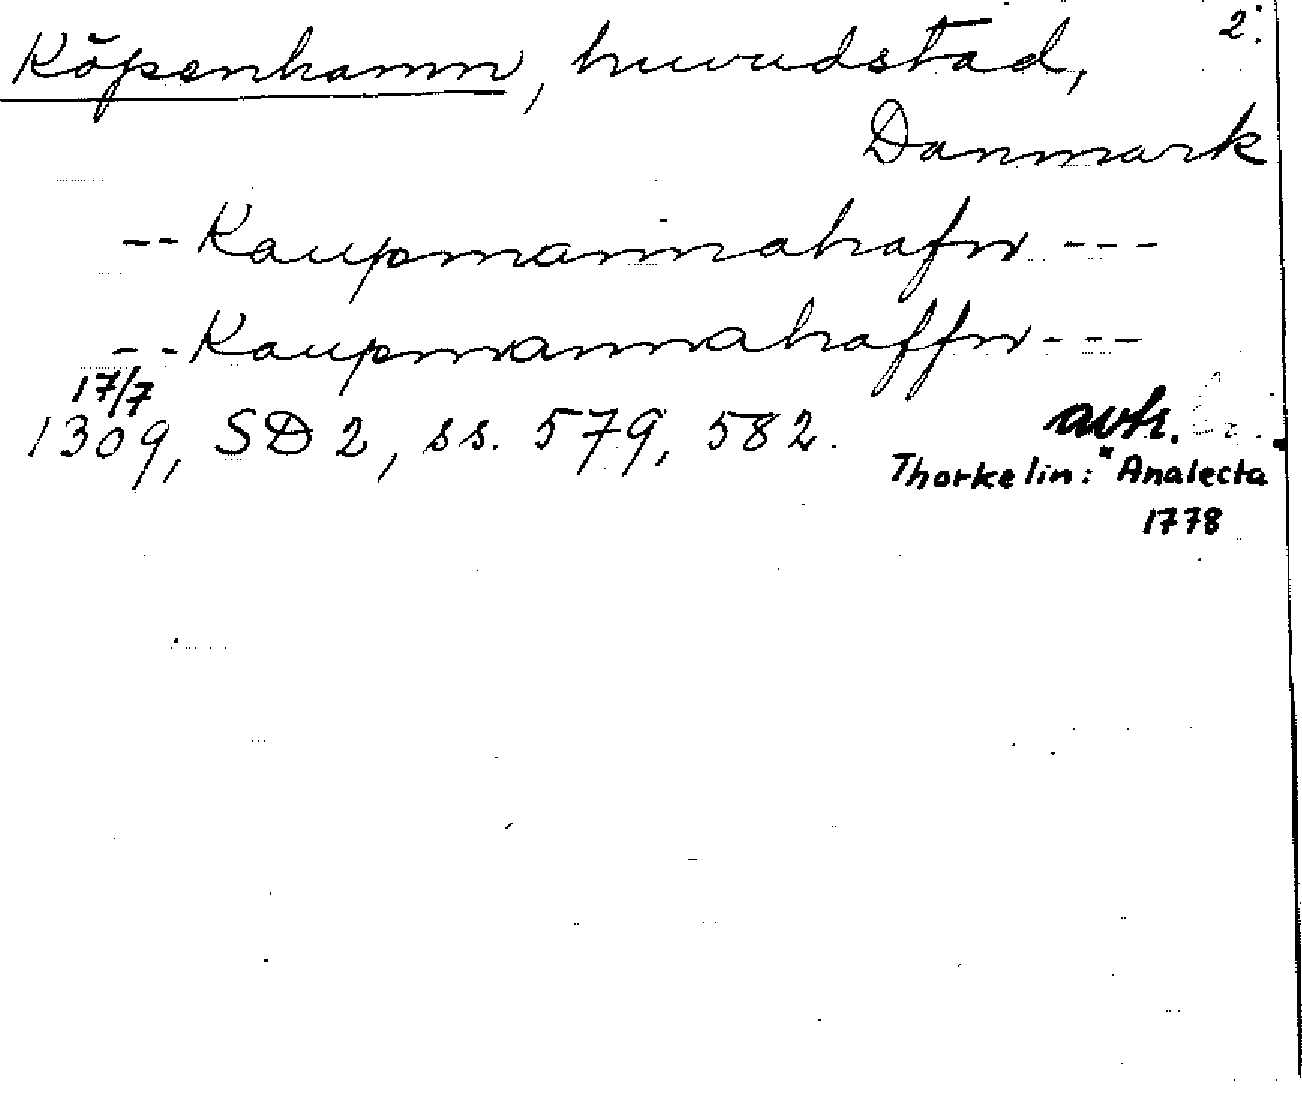 2:
Köpenhamn, huvudstad,
Danmark
-- Kaupmannahafn ---
-- Kaupmannahaffn ---
17/7
1309, SD 2, ss. 579, 582.
avh.
Thorkelin: "Analecta
1778